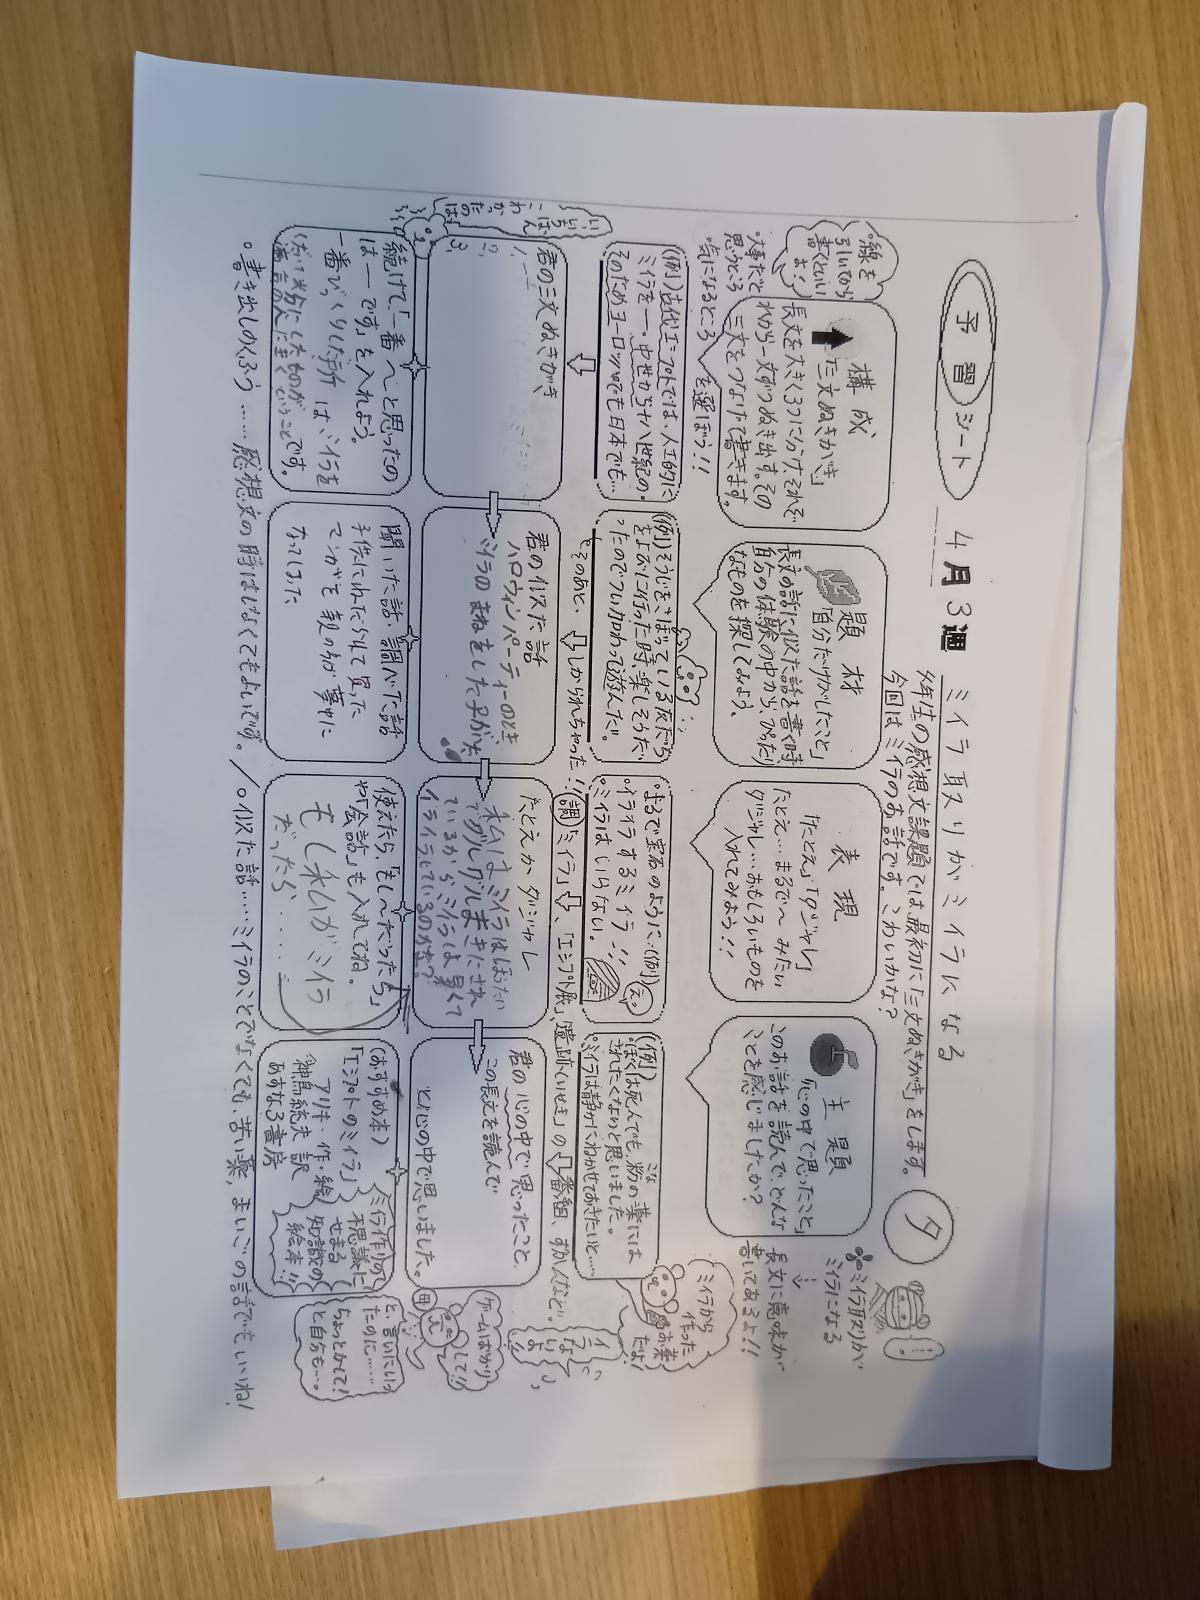 予習シート
4月3週
ミイラ取りがミイラになる
タ
今回はミイラのお話です。こわいかな？
※ミイラ取りがミイラになる
↓
長文に意味が書いてあるよ!!
線を引いてから書くといいよ！
構成
「三文ぬきがき」
長文を大きく3つに分け、それぞれから一文ずつぬき出す。その三文をつなげて書きます。
・大事だと思うところ
・気になるところ
を選ぼう!!
題材
「自分だけがしたこと」
長文の話に似た話を書く時
自分の体験の中から、ぴったりなものを探してみよう。
表現
「たとえ」「ダジャレ」
たとえ…まるで〜みたい
ダジャレ…おもしろいものを入れてみよう!!
主題
「心の中で思ったこと」
このお話を読んで、どんなことを感じましたか？
(例)古代エジプトでは、人工的にミイラを…。中世から十八世紀の。そのためヨーロッパでも日本でも…
(例)そうじをさぼっている友だちを
ったのでつい加わって遊んだ。
そのあと、しかられちゃった!!
(例)
まるで宝石のように…
・イライラするミイラ!!
・ミイラはいらない。
(例)
・ぼくは死んでも、粉の薬にはされたくないと思いました。
こな
・ミイラは静かにねかせておきたいと……
ミイラから作ったお薬だよ！
調「ミイラ」、「エジプト展」、「遺跡(いせき)」の番組、ずかんなど。
君の三文ぬきがき
1、
2、
3、
君の似た話
ハロウィンパーティーのとき
ミイラのまねをした子が
たとえかダジャレ
私はミイラはほうたいでグルグルまきにされているからミイラは暑くてイライラしているのかな？
君の心の中で思ったこと
この長文を読んで
と心の中で思いました。
いちばんこわかったのは
続けて、「一番〜と思ったのは——です」を入れよう。
一番びっくりした所は、ミイラを
聞いた話・調べた話
子供にねだられて買ったマンガを親の方が夢中になってしまった
使えたら、「もし〜だったら」や「会話」も入れてね。
もし私がミイラだったら……
(おすすめ本)
「エジプトのミイラ」
アリキ・作・絵
神鳥統夫 訳
あすなろ書房
ミイラ作りの不思議にせまる知識の絵本!!!
ゲームばかりして!!
と、言いにいったのに……
ちょっとかして！と自分も…。
。書き出しのくふう……感想文の時はしなくてもよいです。／。似た話……ミイラのことでなくても、苦い薬、まいごの話でもいいね！